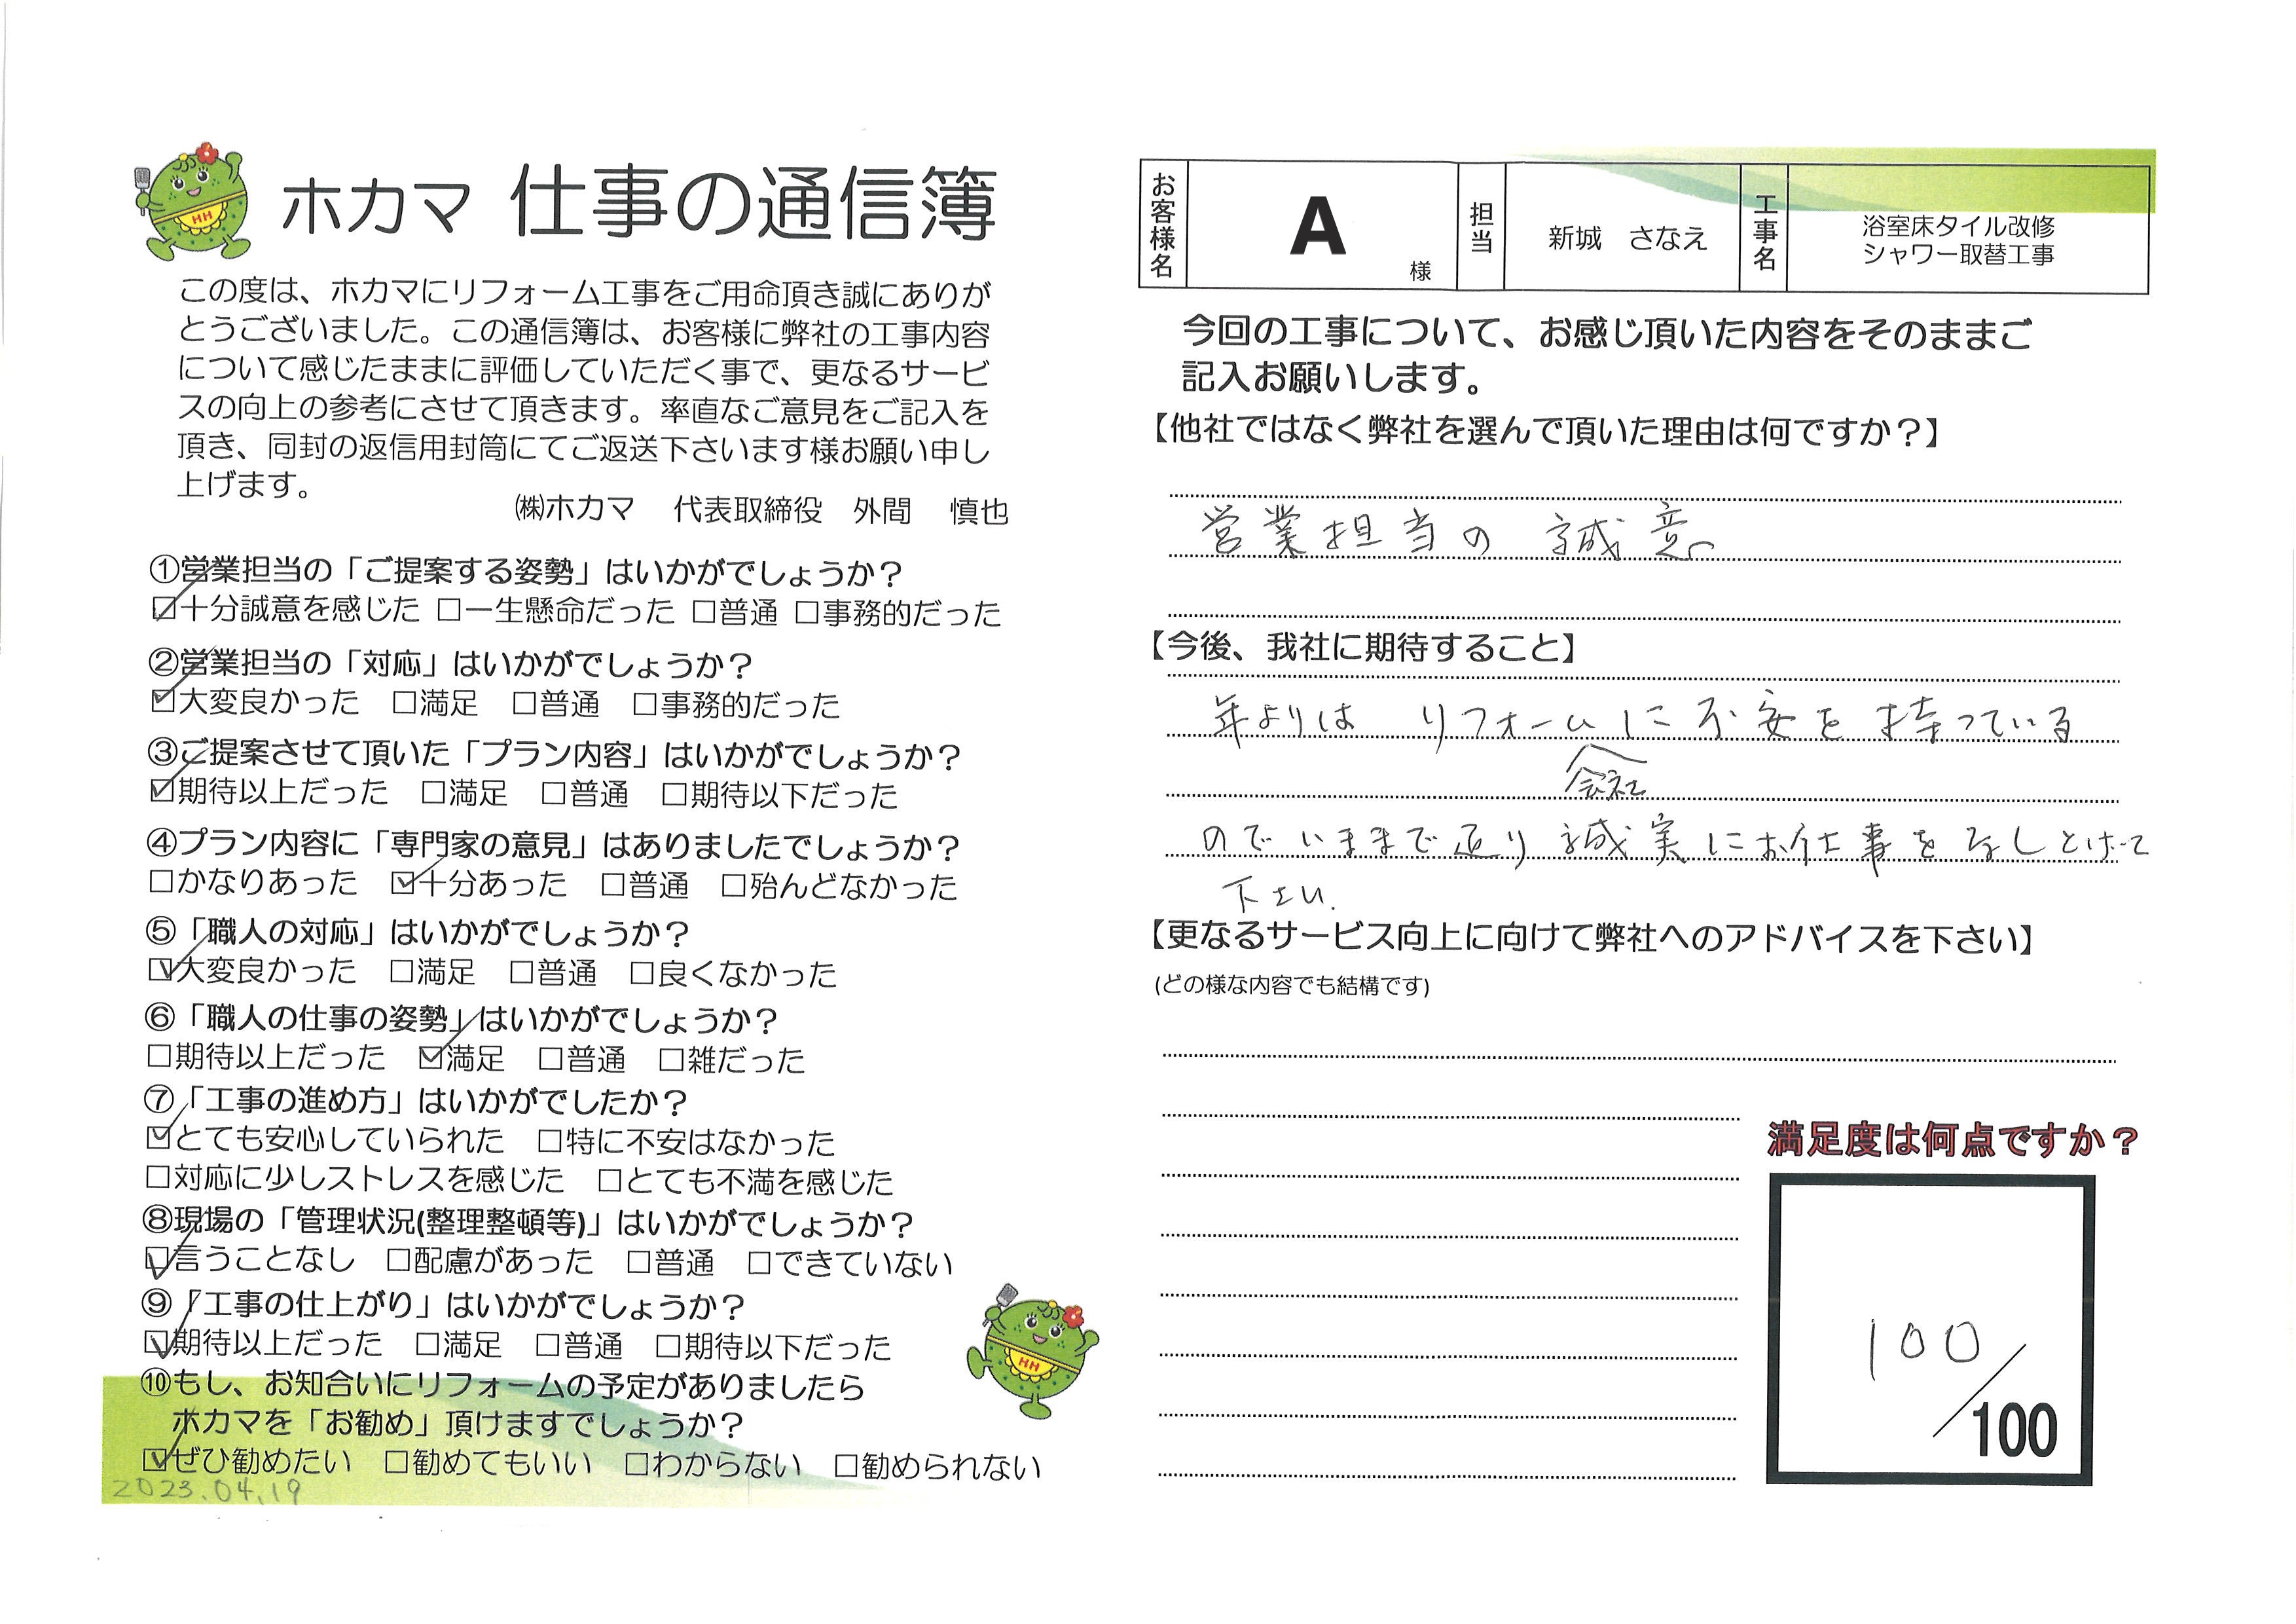 ホカマ 仕事の通信簿
この度は、ホカマにリフォーム工事をご用命頂き誠にありが
とうございました。この通信簿は、お客様に弊社の工事内容
について感じたままに評価していただく事で、更なるサービ
スの向上の参考にさせて頂きます。率直なご意見をご記入を
頂き、同封の返信用封筒にてご返送下さいます様お願い申し
上げます。
㈱ホカマ 代表取締役 外間 慎也
①営業担当の「ご提案する姿勢」はいかがでしょうか？
☑十分誠意を感じた □一生懸命だった □普通 □事務的だった
②営業担当の「対応」はいかがでしょうか？
☑大変良かった □満足 □普通 □事務的だった
③ご提案させて頂いた「プラン内容」はいかがでしょうか？
☑期待以上だった □満足 □普通 □期待以下だった
④プラン内容に「専門家の意見」はありましたでしょうか？
□かなりあった ☑十分あった □普通 □殆んどなかった
⑤「職人の対応」はいかがでしょうか？
☑大変良かった □満足 □普通 □良くなかった
⑥「職人の仕事の姿勢」はいかがでしょうか？
□期待以上だった ☑満足 □普通 □雑だった
⑦「工事の進め方」はいかがでしたか？
☑とても安心していられた □特に不安はなかった
□対応に少しストレスを感じた □とても不満を感じた
⑧現場の「管理状況(整理整頓等)」はいかがでしょうか？
☑言うことなし □配慮があった □普通 □できていない
⑨「工事の仕上がり」はいかがでしょうか？
☑期待以上だった □満足 □普通 □期待以下だった
⑩もし、お知合いにリフォームの予定がありましたら
ホカマを「お勧め」頂けますでしょうか？
☑ぜひ勧めたい □勧めてもいい □わからない □勧められない
2023.04.19
HH
HH
お客様名 A 様 担当 新城 さなえ 工事名 浴室床タイル改修
シャワー取替工事
今回の工事について、お感じ頂いた内容をそのままご
記入お願いします。
【他社ではなく弊社を選んで頂いた理由は何ですか？】
営業担当の 誠意
【今後、我社に期待すること】
年よりは リフォームに不安を持っている
会社
のでいままで通り誠実にお仕事をなしとげて
下さい.
【更なるサービス向上に向けて弊社へのアドバイスを下さい】
(どの様な内容でも結構です)
満足度は何点ですか？
100/100